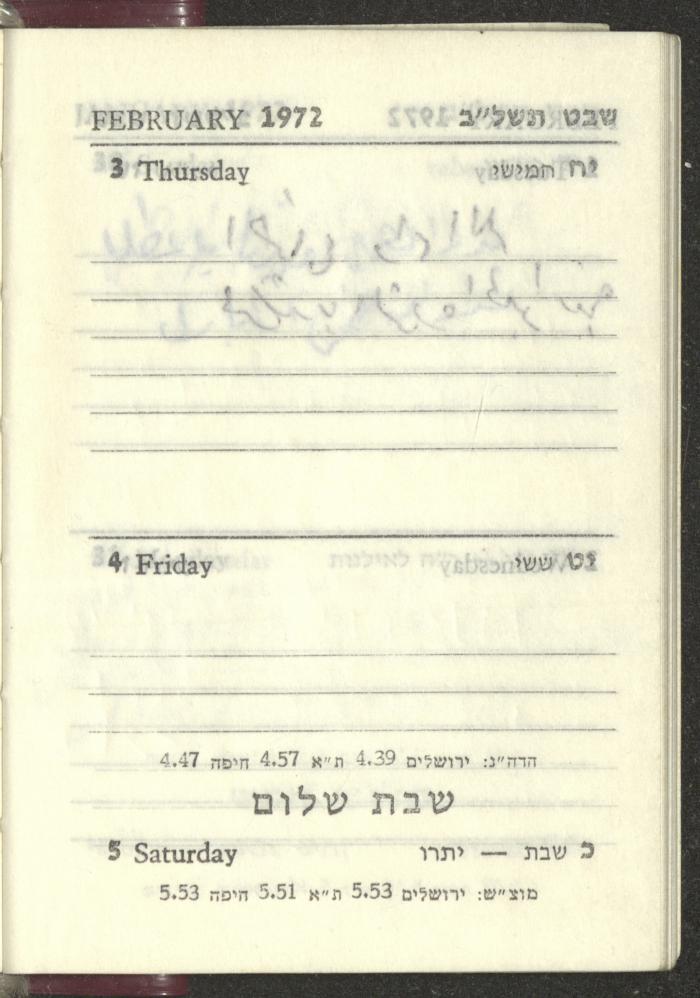 FEBRUARY 1972 שבט תשל״ב
3 Thursday יח חמישי
4 Friday יט ששי
הדה״נ: ירושלים 4.39 ת״א 4.57 חיפה 4.47
שבת שלום
5 Saturday כ שבת — יתרו
מוצ״ש: ירושלים 5.53 ת״א 5.51 חיפה 5.53